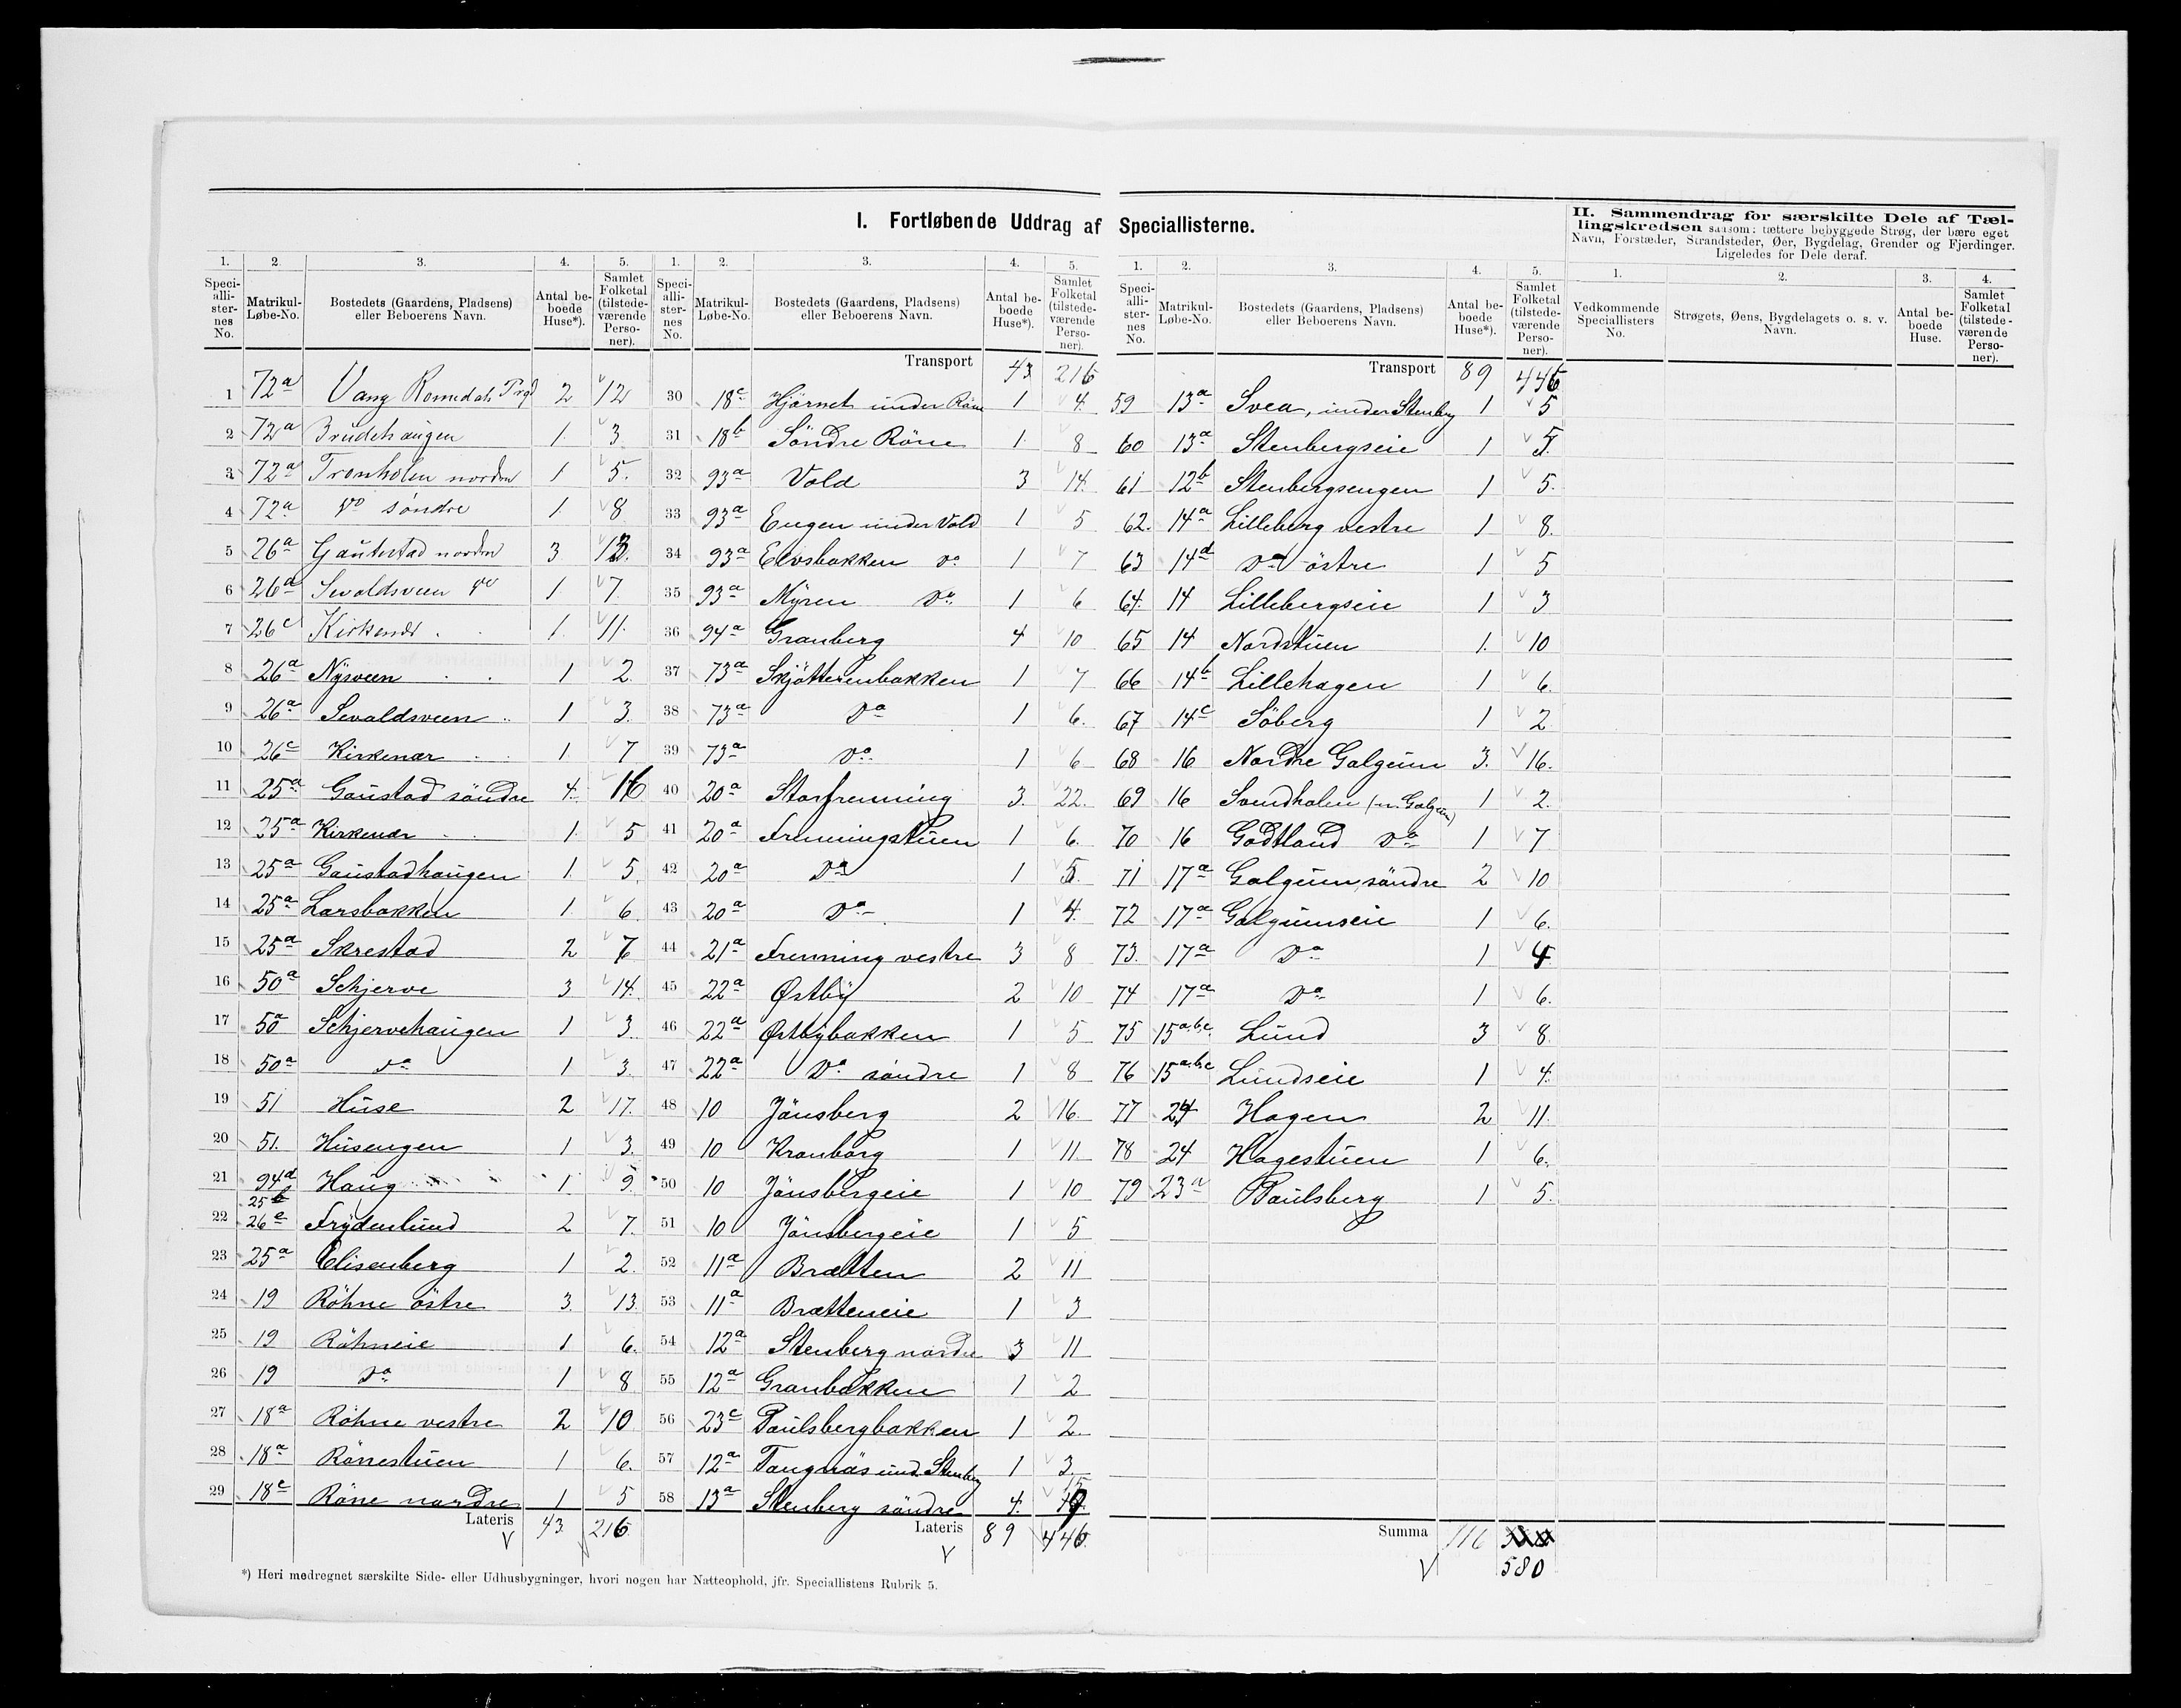 I. Fortløbende Uddrag af Speciallisterne.
II. Sammendrag for særskilte Dele af Tæl-
lingskredsen saasom: tættere bebyggede Strøg, der bære eget
Navn, Forstæder, Strandsteder, Øer, Bygdelag, Grender og Fjerdinger.
Ligeledes for Dele deraf.
1. 2. 3. 4. 5.
Speci-alli-ster-nes No. Matrikul-Løbe-No. Bostedets (Gaardens, Pladsens) eller Beboerens Navn. Antal be-boede Huse*). Samlet Folketal (tilstede-værende Perso-ner).
1 72a Vang Romedals 2 12
2 72a Brudehaugen 1 3
3 72a Tronholen nordre 1 5.
4 72a do søndre 1 8
5 26a Gaustad nordre 3 13.
6 26a Sevaldsveen do 1 7.
7 26c Kirkenær 1 11.
8 26a Nÿsveen 1 2.
9 26a Sevaldsveen 1 3.
10 26c Kirkenær 1 7
11 25a Gaustad söndre 4. 16
12 25a Kirkenær 1. 5
13 25a Gaustadhaugen 1. 5.
14 25a Larsbakken 1 6.
15 25a Skrestad 2 7
16 50a Schjerve 3 14.
17 50a Schjervehaugen 1 3.
18 50a do 1 3.
19 51 Huse 2 17.
20 51. Husengen 1 3.
21 94d Haug 1. 9.
22 25b 26e Frydenlund 2 7.
23 25a Elisenberg 1 2.
24 19 Röhne östre 3. 13.
25 19 Röhneie 1 6.
26 19 Do 1 8
27 18a Röhne vestre 2 10
28 18a Rönestuen 1 6.
29 18c Röne nordre 1 5
Lateris 43 216
1. 2. 3. 4. 5.
Speci-alli-ster-nes No. Matrikul-Løbe-No. Bostedets (Gaardens, Pladsens) eller Beboerens Navn. Antal be-boede Huse*). Samlet Folketal (tilstede-værende Perso-ner).
Transport 43 216
30 18c Hjörnet under Röne 1 4.
31 18b Söndre Röne 1. 8
32 93a Vold 3 14.
33 93a Engen under Vold 1 5
34 93a Elvsbakken Do 1 7
35 93a Mÿren Do 1 6
36 94a Granberg 4 10
37 73a Skjötterenbakken 1 7
38 73a Do 1 6.
39 73a Do 1 6
40 20a Storfrenning 3. 22.
41 20a Frenningstuen 1 6.
42 20a Do 1 5.
43 20a Do 1 4.
44 21a Frenning vestre 3 8
45 22a Østbÿ 2 10
46 22a Østbÿbakken 1 5
47 22a Do söndre 1 8
48 10 Jönsberg 2 16.
49 10 Kronborg 1 11
50 10 Jönsbergeie 1 10
51 10 Jönsbergeie 1 5
52 11a Brætten 2 11
53 11a Brætteneie 1 3
54 12a Stenberg nordre 3 11
55 12a Granbakken 1 2
56 23c Paulsbergbakken 1 2.
57 12a Tangnäs und. Stenberg 1 3.
58 13a Stenberg söndre 4. 15
Lateris 89 446
1. 2. 3. 4. 5.
Speci-alli-ster-nes No. Matrikul-Løbe-No. Bostedets (Gaardens, Pladsens) eller Beboerens Navn. Antal be-boede Huse*). Samlet Folketal (tilstede-værende Perso-ner).
Transport 89 446
59 13a Svea, under Stenberg 1 5
60 13a Stenbergseie 1 5.
61 12b Stenbergsengen 1 5.
62. 14a Lilleberg vestre 1 8.
63 14d Do östre 1 5
64. 14 Lillebergseie 1 3
65 14 Nordstuen 1. 10
66 14b Lillehagen 1 6.
67 14c Söberg 1 2
68 16 Nordre Galgum 3. 16.
69 16 Svendholen (n. Galgum) 1 2.
70 16 Godtland Do 1 7
71 17a Galgum, söndre 2 10
72 17a Galgumseie 1 6.
73. 17a Do 1 4
74 17a Do 1 6.
75 15a.b.c. Lund 3 8.
76 15a.b.c Lundseie 1 4.
77 24 Hagen 2 11.
78 24 Hagestuen 1 6.
79 23a Paulsberg 1 5.
Summa 116
580
1. 2. 3. 4.
Vedkommende Speciallisters No. Strøgets, Øens, Bygdelagets o. s. v. Navn. Antal be-boede Huse. Samlet Folketal (tilstede-værende Perso-ner).
*) Heri medregnet særskilte Side- eller Udhusbygninger, hvori nogen har Natteophold, jfr. Speciallistens Rubrik 5.